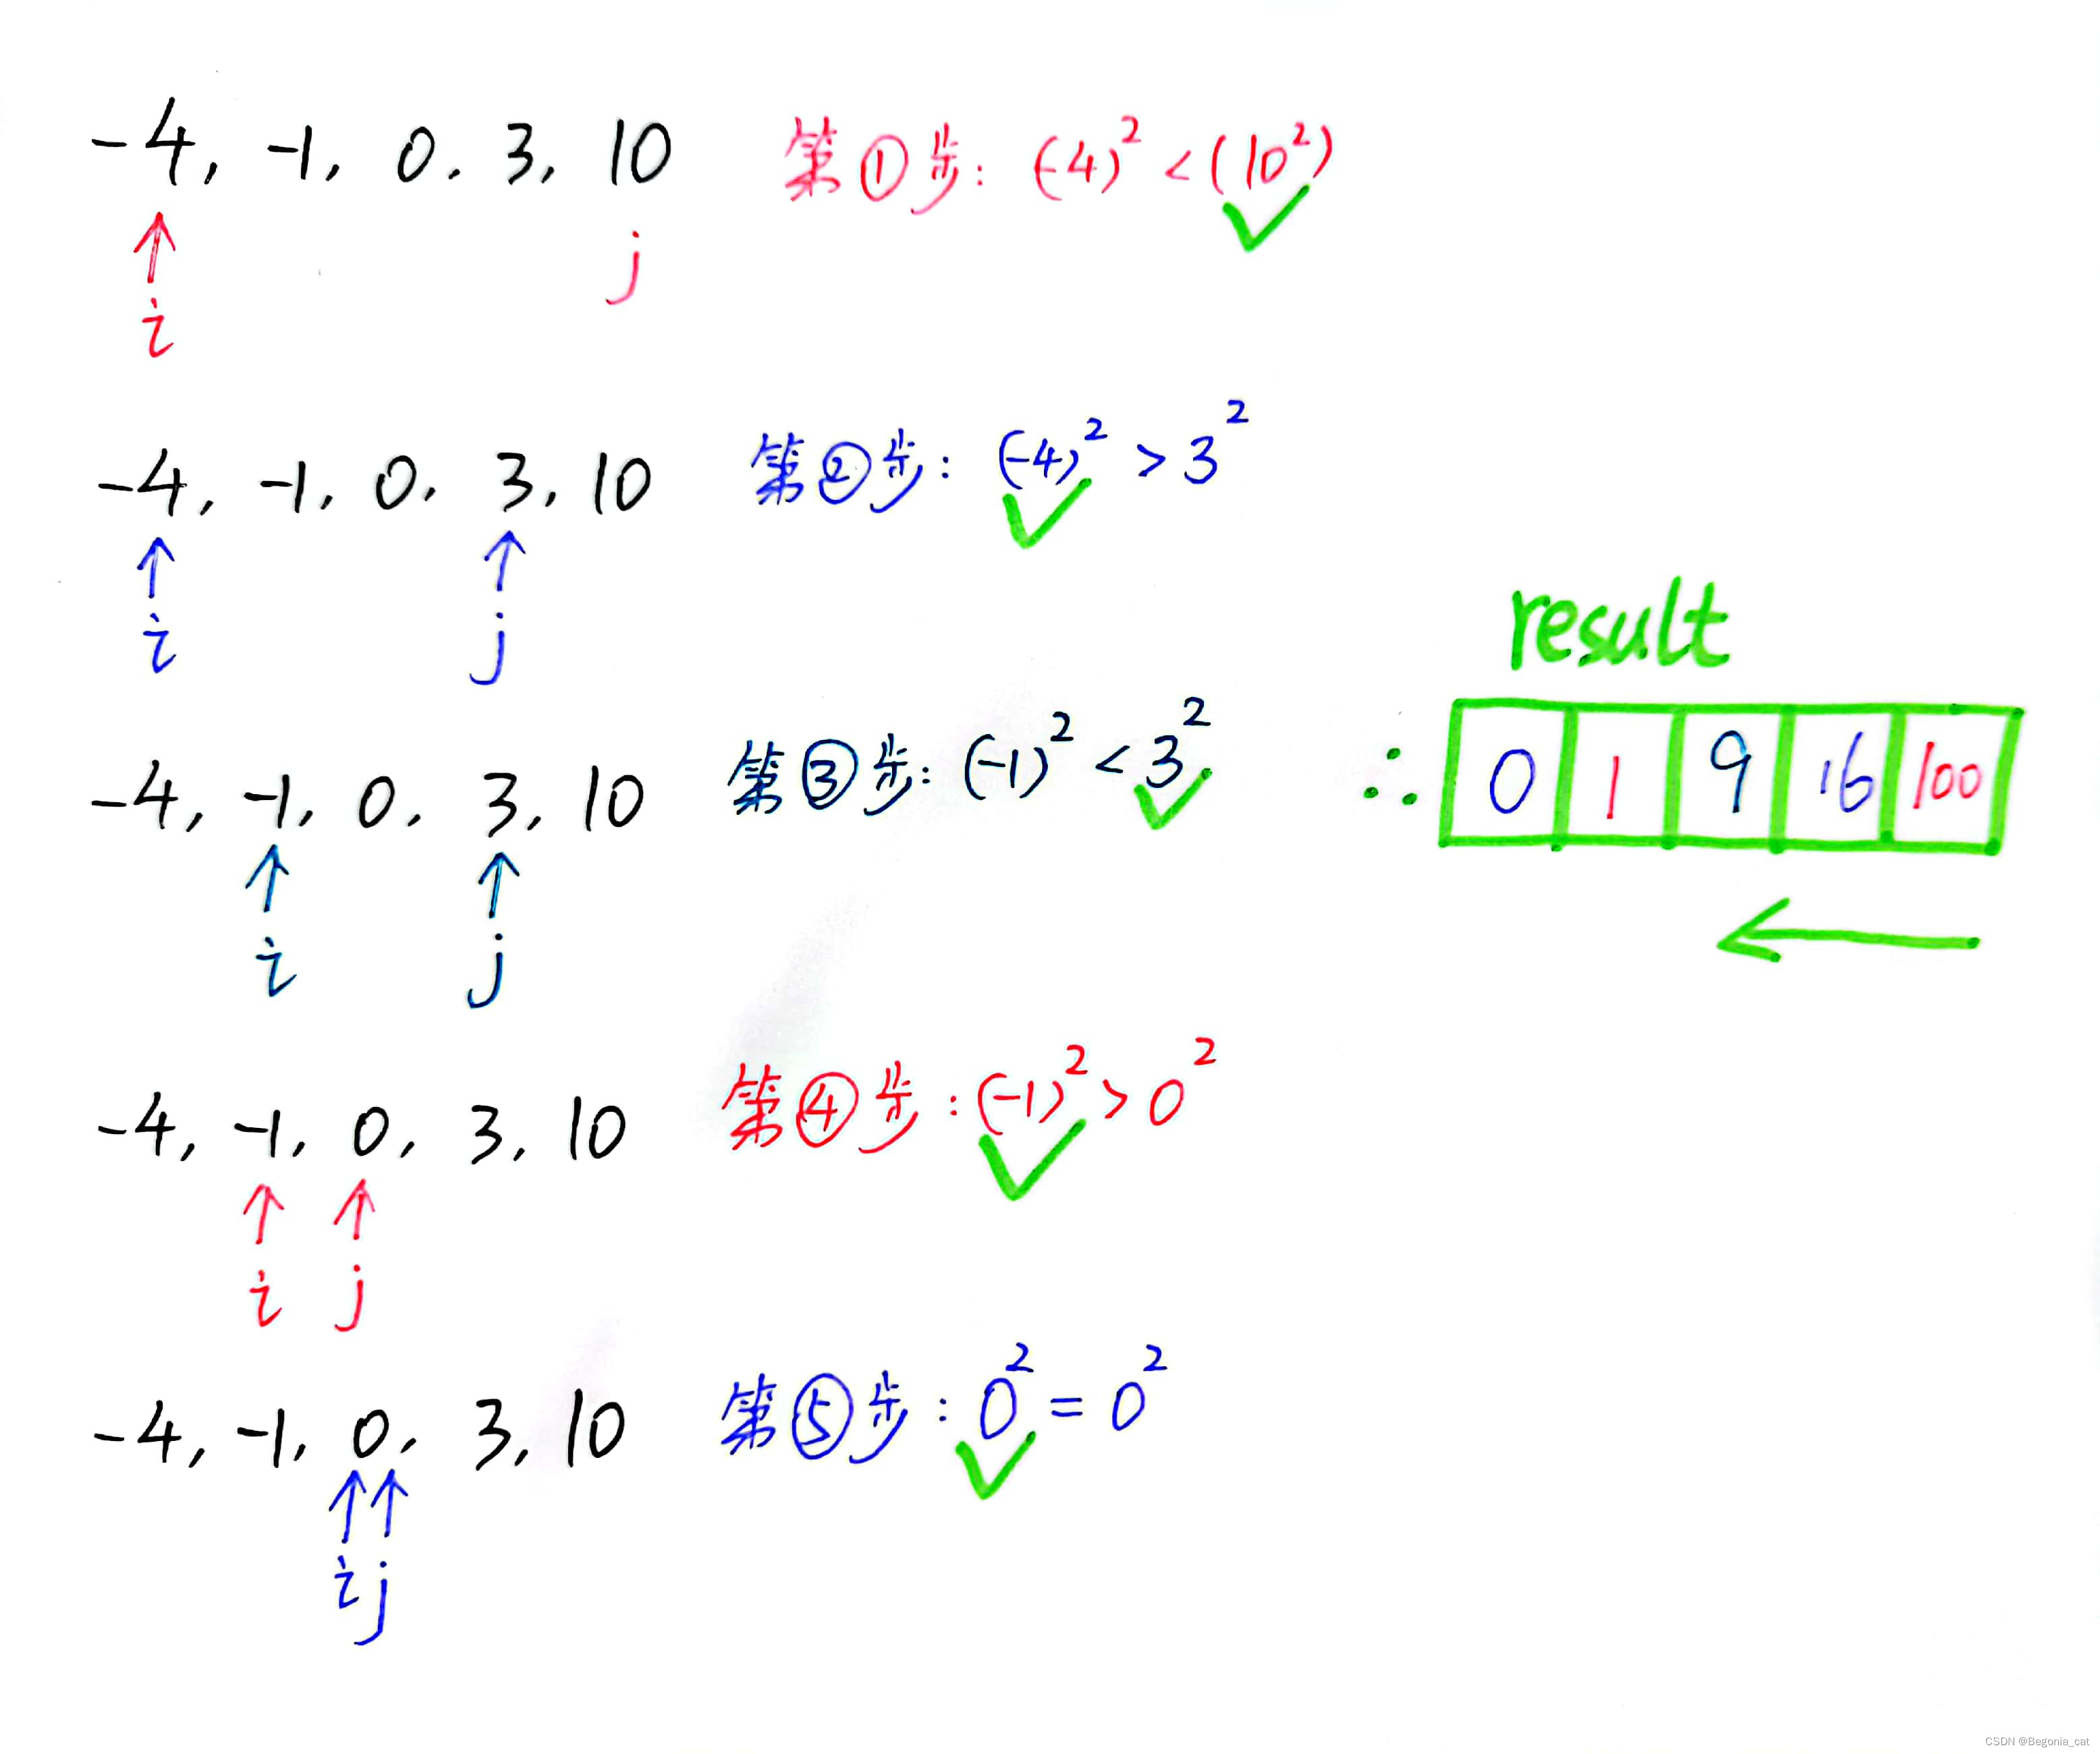 -4, -1, 0, 3, 10 第①步: (-4)² < (10²)
i j
-4, -1, 0, 3, 10 第②步: (-4)² > 3²
i j
result
-4, -1, 0, 3, 10 第③步: (-1)² < 3² ∴ 0 1 9 16 100
i j
-4, -1, 0, 3, 10 第④步: (-1)² > 0²
i j
-4, -1, 0, 3, 10 第⑤步: 0² = 0²
i j
CSDN @Begonia_cat